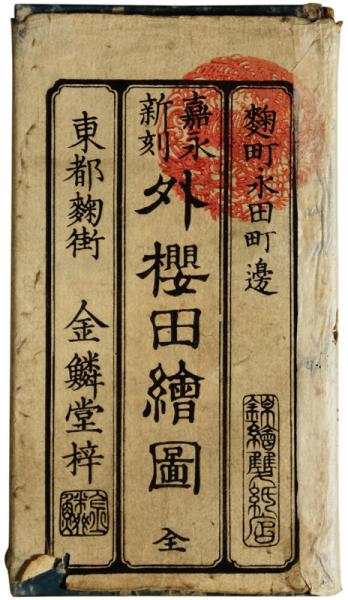 麴町永田町邊
錦繪雙紙店
嘉永
新刻
外櫻田繪圖
全
東都麴街
金鱗堂梓